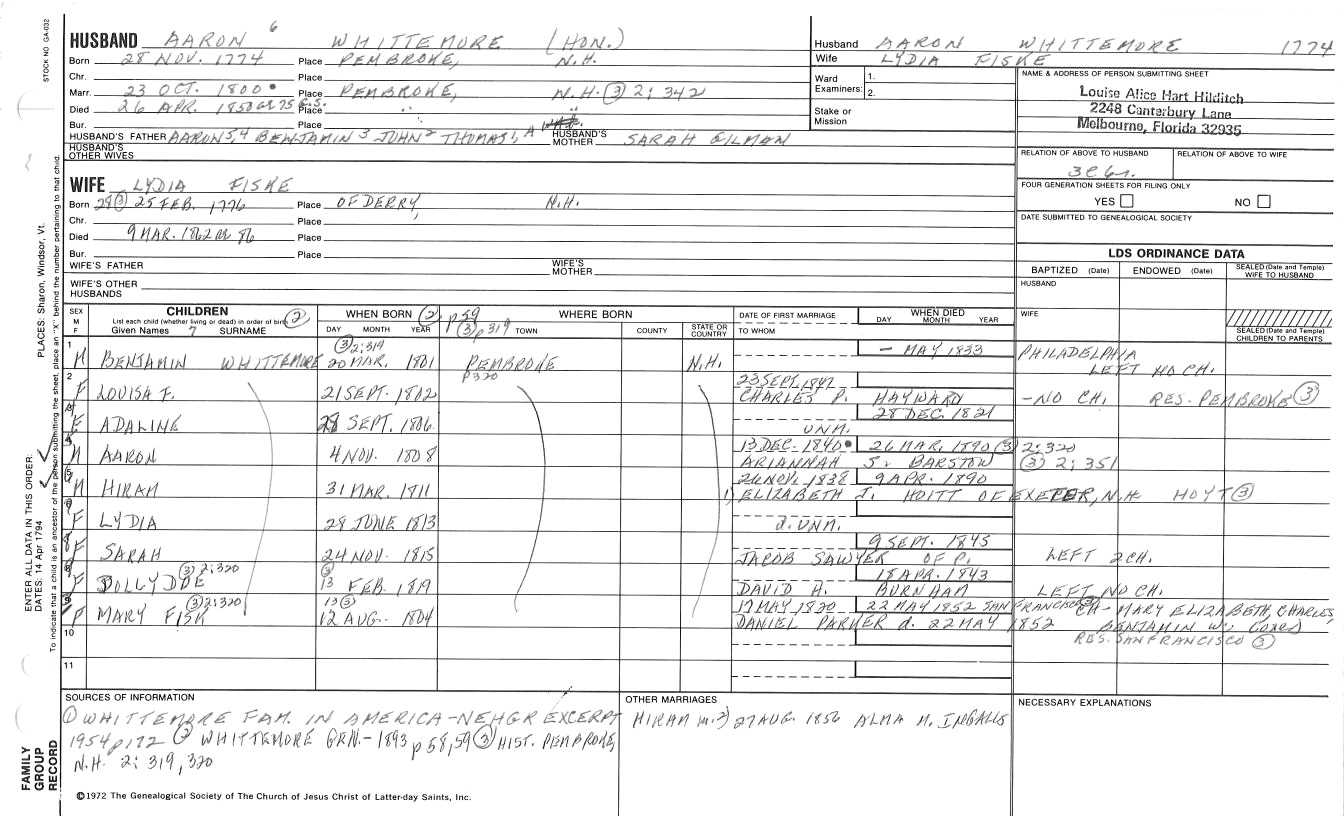 STOCK NO GA-032
HUSBAND AARON 6 WHITTEMORE (HON.)
Born 28 NOV. 1774 Place PEMBROKE, N.H.
Chr. Place
Marr. 23 OCT. 1800 Place PEMBROKE, N.H. (3) 2:342
Died 26 APR. 1850 Place
Bur. Place
HUSBAND'S FATHER AARON 5,4 BENJAMIN 3 JOHN 2 THOMAS 1, A HUSBAND'S MOTHER SARAH GILMAN
HUSBAND'S OTHER WIVES
WIFE LYDIA FISKE
Born 28(3) 25 FEB. 1776 Place OF DERRY, N.H.
Chr. Place
Died 9 MAR. 1862 AE 86 Place
Bur. Place
WIFE'S FATHER WIFE'S MOTHER
WIFE'S OTHER HUSBANDS
Husband AARON WHITTEMORE 1774
Wife LYDIA FISKE
Ward Examiners: 1.
2.
Stake or Mission
NAME & ADDRESS OF PERSON SUBMITTING SHEET
Louise Alice Hart Hilditch
2248 Canterbury Lane
Melbourne, Florida 32935
RELATION OF ABOVE TO HUSBAND RELATION OF ABOVE TO WIFE
3C6r.
FOUR GENERATION SHEETS FOR FILING ONLY
YES NO
DATE SUBMITTED TO GENEALOGICAL SOCIETY
LDS ORDINANCE DATA
BAPTIZED (Date) ENDOWED (Date) SEALED (Date and Temple) WIFE TO HUSBAND
HUSBAND
WIFE
SEALED (Date and Temple) CHILDREN TO PARENTS
SEX M F
CHILDREN
List each child (whether living or dead) in order of birth (2)
Given Names 7 SURNAME
WHEN BORN (2) p59
DAY MONTH YEAR (3) p319
WHERE BORN
TOWN COUNTY STATE OR COUNTRY
DATE OF FIRST MARRIAGE
TO WHOM
WHEN DIED
DAY MONTH YEAR
1 M BENJAMIN WHITTEMORE (3) 2:319 20 MAR. 1801 PEMBROKE p320 N.H. - MAY 1833 PHILADELPHIA LEFT NO CH.
2 F LOUISA F. 21 SEPT. 1802 CHARLES P. HAYWARD -NO CH. RES. PEMBROKE (3)
F ADALINE 28 SEPT. 1806 UNM. 28 DEC. 1821
M AARON 4 NOV. 1808 13 DEC. 1840 26 MAR. 1890 (3) 2:320
ARIANNAH S. BARSTOW (3) 2:351
M HIRAM 31 MAR. 1811 9 APR. 1890
1) ELIZABETH J. HOITT OF EXETER, N.H. HOYT (3)
F LYDIA 28 JUNE 1813 d. UNM.
F SARAH 24 NOV. 1815 9 SEPT. 1845
JACOB SAWYER OF P. LEFT 2 CH.
F DOLLY DOE (3) 2:320 (3) 13 FEB. 1819 18 APR. 1843
DAVID A. BURNHAM LEFT NO CH.
9 F MARY FISK (3) 2:320 13 (3) 12 AUG. 1804 17 MAY 1830 22 MAY 1852 SAN FRANCISCO (3) CH- MARY ELIZABETH, CHARLES,
DANIEL PARKER d. 22 MAY 1852 BENJAMIN W.,
RES. SAN FRANCISCO (3)
10
11
SOURCES OF INFORMATION
(1) WHITTEMORE FAM. IN AMERICA-NEHGR EXCERPT
1954 p172 (2) WHITTEMORE GEN.-1893 p58,59 (3) HIST. PEMBROKE,
N.H. 2:319,320
OTHER MARRIAGES
HIRAM m. 2) 27 AUG. 1856 ALMA M. INGALLS
NECESSARY EXPLANATIONS
©1972 The Genealogical Society of The Church of Jesus Christ of Latter-day Saints, Inc.
FAMILY GROUP RECORD
ENTER ALL DATA IN THIS ORDER:
DATES: 14 Apr 1794 PLACES: Sharon, Windsor, Vt.
To indicate that a child is an ancestor of the person submitting the sheet, place an "X" behind the number pertaining to that child.